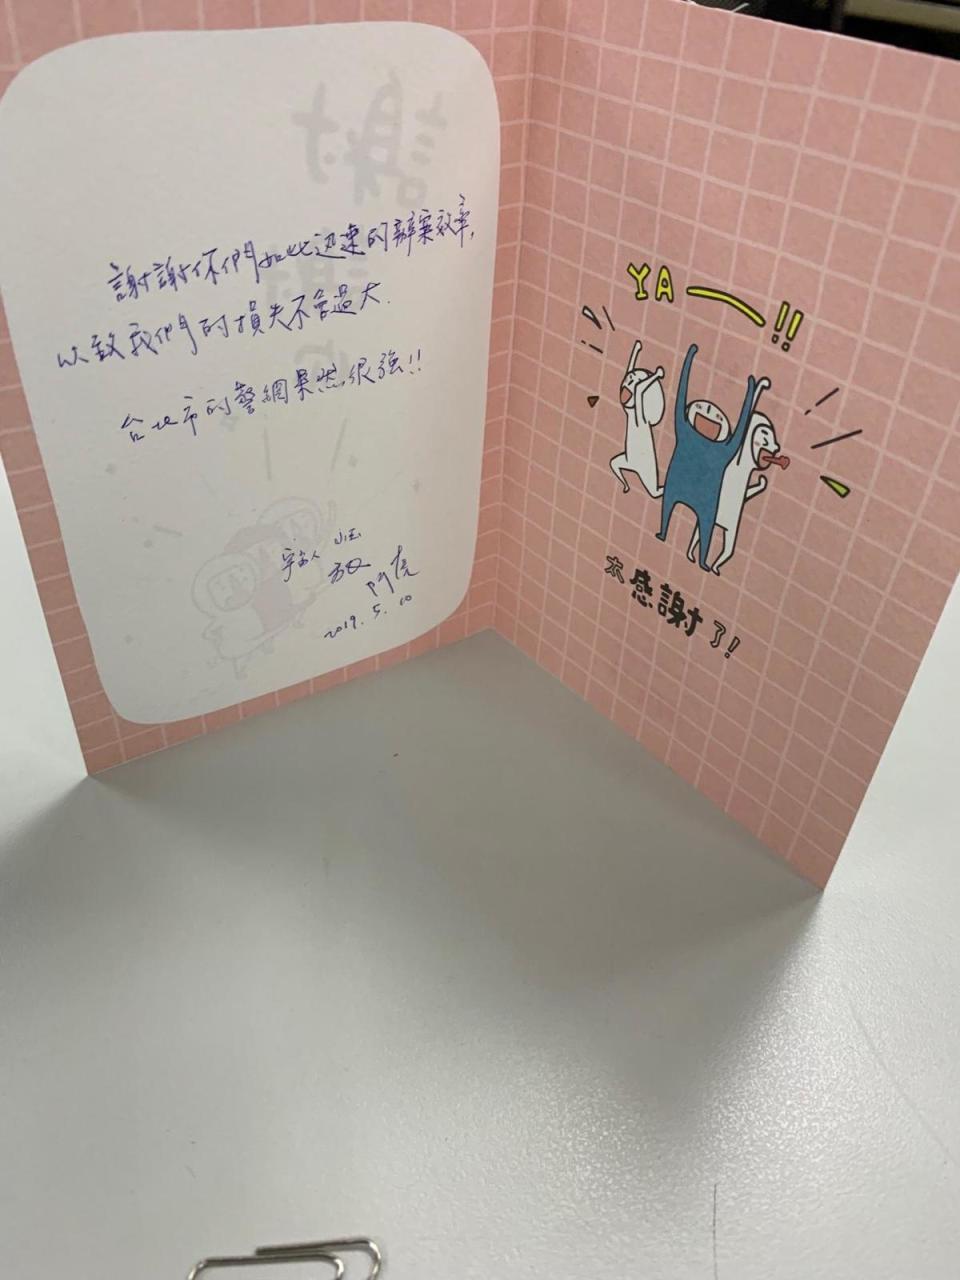 謝謝你們如此迅速的辦案效率,
以致我們的損失不會過大.
台北市的警網果然很強!!
2019.5.10
YA一!!
太感謝了!